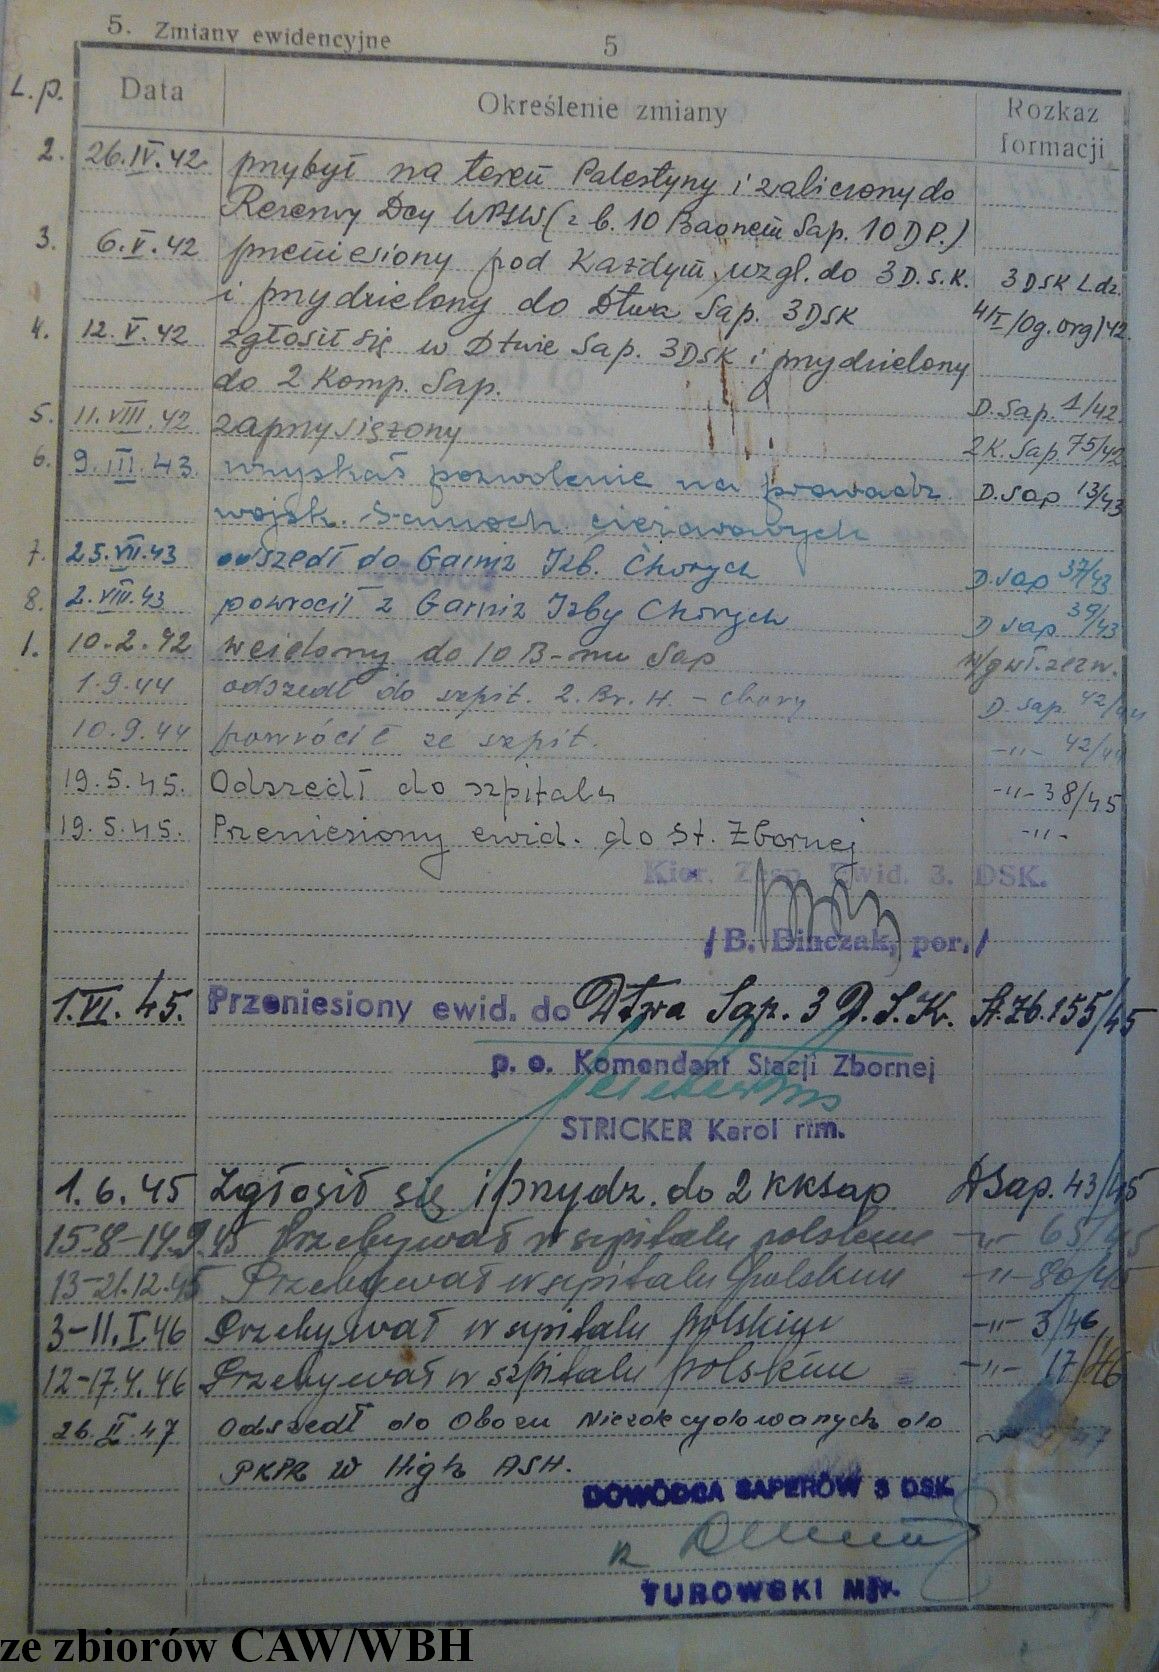 5. Zmiany ewidencyjne
5
L.p. Data Określenie zmiany Rozkaz formacji
2. 26.IV.42 przybył na teren Palestyny i zaliczony do
Rezerwy Dcy WPSW (z b. 10 Baonem Sap. 10 DP.)
3. 6.V.42 przeniesiony pod każdym wzgl. do 3 D.S.K. 3 DSK L.dz.
i przydzielony do Dtwa Sap. 3 DSK 41I/Og.org/42
4. 12.V.42 zgłosił się w Dtwie Sap. 3DSK i przydzielony
do 2 Komp. Sap. D.Sap. 1/42
5. 11.VIII.42 zaprzysiężony 2K. Sap. 75/42
6. 9.III.43. uzyskał pozwolenie na prowadz. D.Sap 13/43
wojsk. samoch. ciężarowych
7. 25.VII.43 odszedł do Garniz Izb. Chorych D.Sap 37/43
8. 2.VIII.43 powrócił z Garniz Izby Chorych D Sap 39/43
1. 10.2.42 wcielony do 10 B-nu Sap W/g wł. zezn.
1.9.44 odszedł do szpit. 2. Br. H. - chory D. Sap. 42/44
10.9.44 powrócił ze szpit. -"- 42/44
19.5.45. Odszedł do szpitala -"- 38/45
19.5.45. Przeniesiony ewid. do St. Zbornej -"-
Kier. Zesp. Ewid. 3. DSK.
/B. Binczak, por./
1.VI.45. Przeniesiony ewid. do Dtwa Sap. 3 D.S.K. St.Zb.155/45
p. o. Komendant Stacji Zbornej
STRICKER Karol rtm.
1.6.45 Zgłosił się i przydz. do 2 KKSap DSap. 43/45
15.8-14.9.45 Przebywał w szpitalu polskim -"- 65/45
13-21.12.45 Przebywał w szpitalu polskim -"- 80/45
3-11.I.46 Przebywał w szpitalu polskim -"- 3/46
12-17.4.46 Przebywał w szpitalu polskim -"- 17/46
26.II.47 Odszedł do Obozu Niezokcydowanych do
PKPR w High ASH.
DOWÓDCA SAPERÓW 3 DSK
TUROWSKI Mjr.
ze zbiorów CAW/WBH